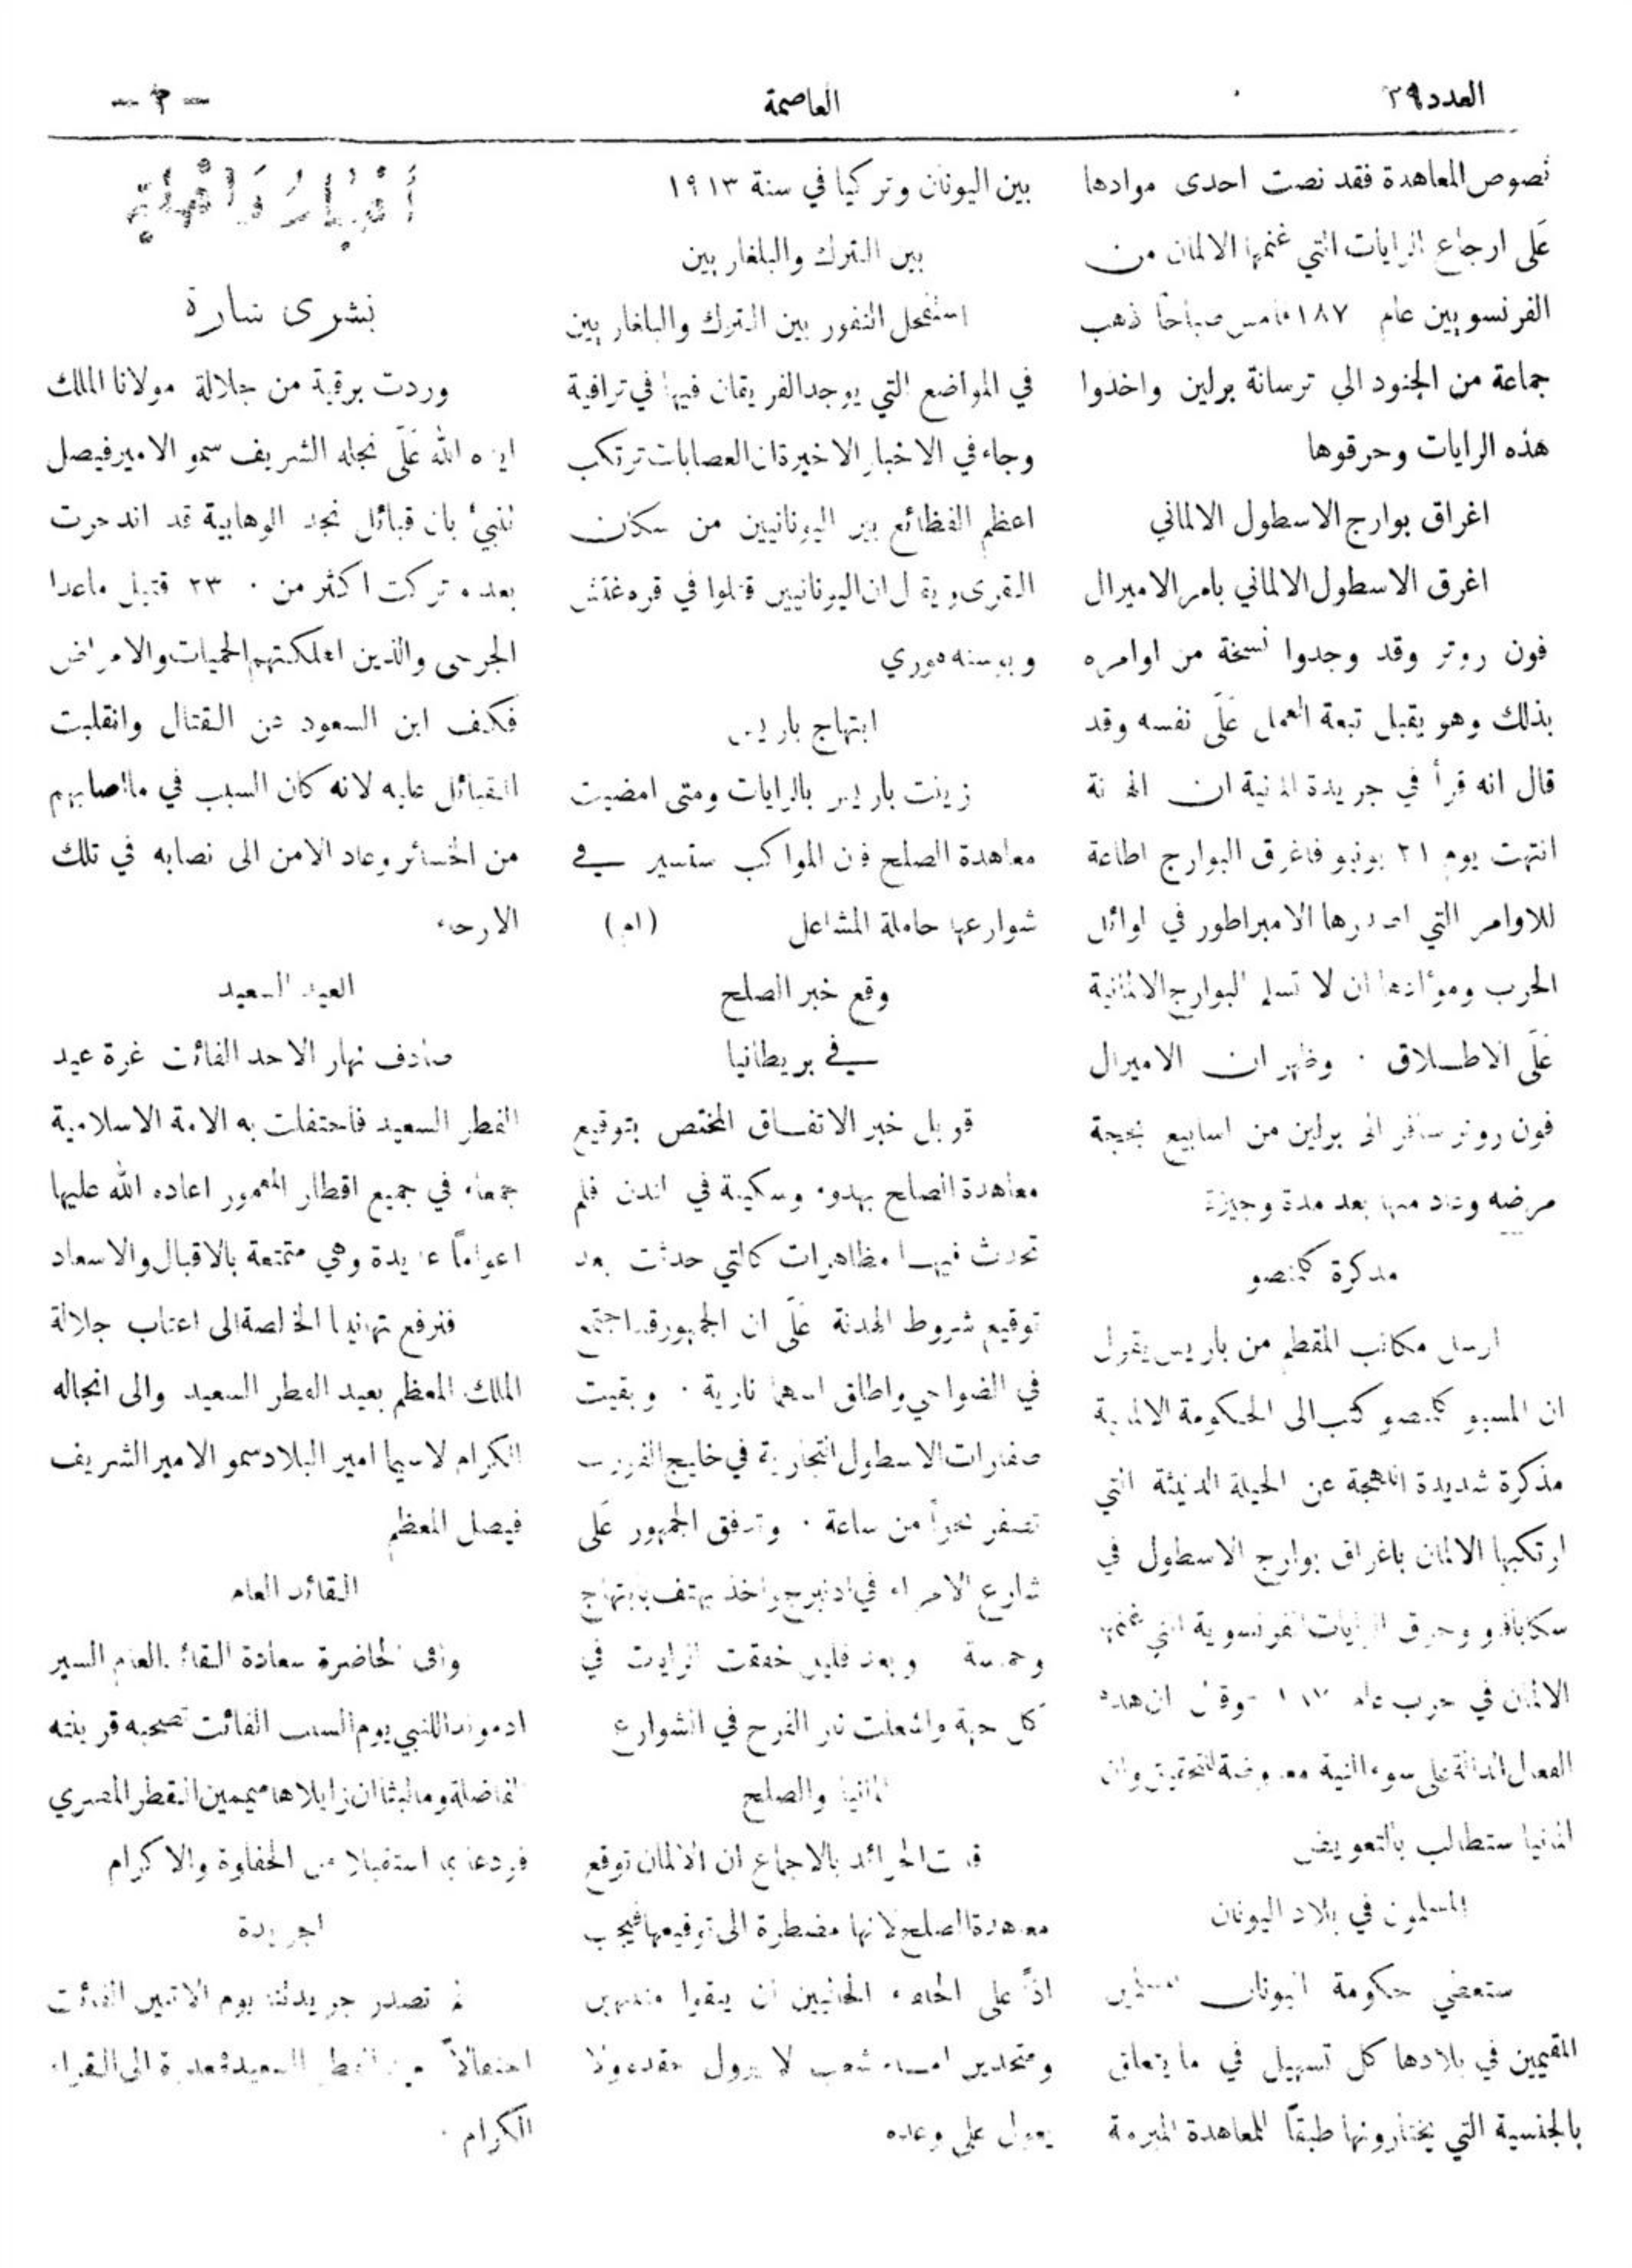 العدد ٣٩
العاصمة
— ٣ —
نصوص المعاهدة فقد نصت احدى موادها
عَلى ارجاع الرايات التي غنمها الالمان من
الفرنسويين عام ١٨٧ صباحاً ذهب
جماعة من الجنود الى ترسانة برلين واخذوا
هذه الرايات وحرقوها
اغراق بوارج الاسطول الالماني
اغرق الاسطول الالماني بامر الاميرال
فون روتر وقد وجدوا نسخة من اوامره
بذلك وهو يقبل تبعة العمل عَلَى نفسه وقد
قال انه قرأ في جريدة المانية ان الهدنة
انتهت يوم ٢١ يونيو فاغرق البوارج اطاعة
للاوامر التي اصدرها الامبراطور في اوائل
الحرب ومؤداها ان لا تسلم البوارج الالمانية
عَلَى الاطـلاق . وظهر ان الاميرال
فون روتر سافر الى برلين من اسابيع بحجة
مرضه وعاد منها بعد مدة وجيزة
مذكرة كلمنصو
ارسل مكاتب المقطم من باريس يقول
ان المسيو كلمنصو كتب الى الحكومة الالمانية
مذكرة شديدة اللهجة عن الحيلة الدنيئة التي
ارتكبها الالمان باغراق بوارج الاسطول في
سكابافلو وحرق الرايات الفرنسوية التي غنمها
الالمان في حرب عام وقال ان هذه
الفعال الدالة على سوء النية معروضة للتحقيق وان
المانيا ستطالب بالتعويض
المسلمون في بلاد اليونان
ستعطي حكومة اليونان المسلمين
المقيمين في بلادها كل تسهيل في ما يتعلق
بالجنسية التي يختارونها طبقاً للمعاهدة المبرمة
بين اليونان وتركيا في سنة ١٩١٣
بين الترك والبلغار بين
استفحل النفور بين الترك والبلغاريين
في المواضع التي يوجد الفريقان فيها في تراقية
وجاء في الاخبار الاخيرة ان العصابات ترتكب
اعظم الفظائع بين اليونانيين من سكان
القرى ويقال ان اليونانيين قتلوا في قره غتش
ابتهاج باريس
زينت باريس بالرايات ومتى امضيت
معاهدة الصلح فان المواكب ستسير في
شوارعها حاملة المشاعل (ام)
وقع خبر الصلح
في بريطانيا
قوبل خبر الاتفـاق المختص بتوقيع
معاهدة الصلح بهدوء وسكينة في لندن فلم
تحدث فيها مظاهرات كالتي حدثت بعد
توقيع شروط الهدنة عَلَى ان الجمهور قد اجتمع
في الضواحي واطلق اسهما نارية . وبقيت
صفارات الاسطول التجارية في خليج الفورث
تصفر نحواً من ساعة . وتدفق الجمهور عَلَى
شارع الامراء في ادنبرج واخذ يهتف بابتهاج
وحماسة وبعد قليل خفقت الرايات في
كل جهة واشعلت نار الفرح في الشوارع
المانيا والصلح
قالت الجرائد بالاجماع ان الالمان توقع
معاهدة الصلح لانها مضطرة الى توقيعها فيجب
اذاً على الحلفاء الجانبين ان يبقوا منتبهين
ومتحدين امام شعب لا يزول حقده ولا
يعول على وعده
أخبار داخلية
بشرى سارة
وردت برقية من جلالة مولانا الملك
ايده الله عَلَى نجله الشريف سمو الامير فيصل
تنبئ بان قبائل نجد الوهابية قد اندحرت
بعد ما تركت اكثر من ٢٣٠٠ قتيل ماعدا
الجرحى والذين اهلكتهم الحميات والامراض
فكف ابن السعود عن القتال وانقلبت
القبائل عليه لانه كان السبب في ما اصابهم
من الخسائر وعاد الامن الى نصابه في تلك
الارجاء
العيد السعيد
صادف نهار الاحد الفائت غرة عيد
الفطر السعيد فاحتفلت به الامة الاسلامية
جمعاء في جميع اقطار المعمور اعاده الله عليها
اعواماً عديدة وهي متمتعة بالاقبال والاسعاد
فنرفع تهانينا الخالصة الى اعتاب جلالة
الملك المعظم بعيد الفطر السعيد والى انجاله
الكرام لاسيما امير البلاد سمو الامير الشريف
فيصل المعظم
القائد العام
وافى الحاضرة سعادة القائد العام السير
ادموند اللنبي يوم السبت الفائت تصحبه قرينته
الفاضلة وما لبثا ان زايلاها ميممين القطر المصري
فودعا بما استقبلا من الحفاوة والاكرام
الجريدة
لم تصدر جريدتنا يوم الاثنين الفائت
احتفالاً بعيد الفطر السعيد فمعذرة الى القراء
الكرام .